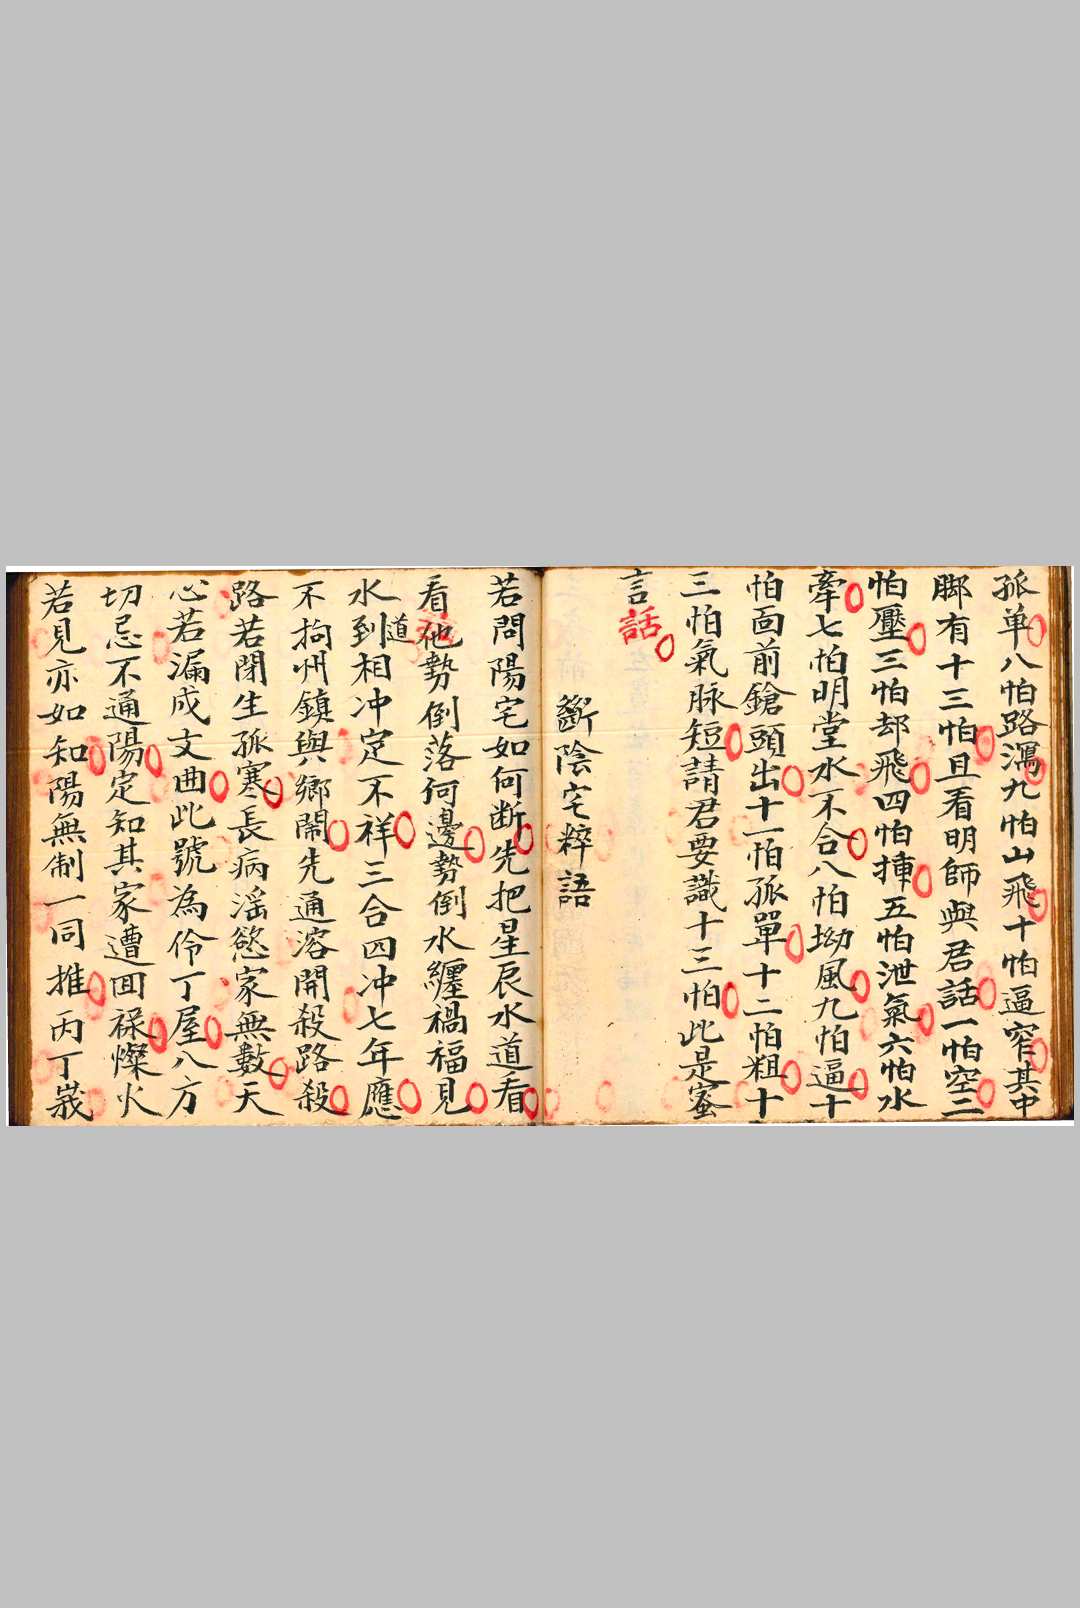 孤单八怕路濁九怕山飛十怕逼窄其中
脚有十三怕且看明師與君話一怕空二
怕壓三怕却飛四怕揷五怕泄氣六怕水
牽七怕明堂水不合八怕坳風九怕逼十
怕面前鎗頭出十一怕孤單十二怕粗十
三怕氣脉短請君要識十三怕此是蜜
言話
斷陰宅粹語
若問陽宅如何断先把星辰水道看
看他勢倒落何邊勢倒水纏禍福見
水到道相冲定不祥三合四冲七年應
不拘州鎮與鄉閙先通溶開殺路殺
路若閉生孤寒長病滛慾家無數天
心若漏成文曲此號為伶丁屋八方
切忌不通陽定知其家遭回祿燦火
若見亦如知陽無制一同推丙丁嵗